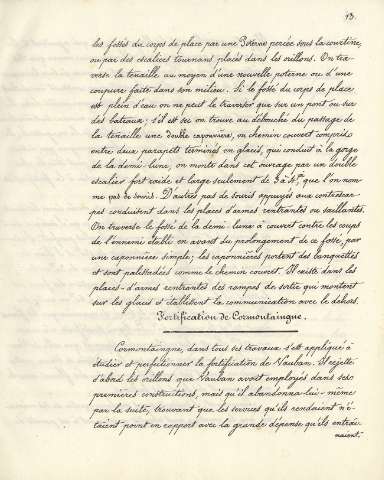 13.
les fossés du corps de place par une Poterne percée sous la courtine,
ou par des escaliers tournans placés dans les orillons. On tra-
verse la tenaille au moyen d'une nouvelle poterne ou d'une
coupure faite dans son milieu. Si le fossé du corps de place
est plein d'eau on ne peut le traverser que sur un pont ou sur
des bateaux; s'il est sec on trouve au débouché du passage de
la tenaille une double caponnière, ou chemin couvert compris
entre deux parapets terminés en glacis, qui conduit à la gorge
de la demi-lune, on monte dans cet ouvrage par un double
escalier fort roide et large seulement de que l'on nom-
me pas de souris. D'autres pas de souris appuyés aux contrescar-
pes conduisent dans les places d'armes rentrantes ou saillantes.
On traverse le fossé de la demi-lune à couvert contre les coups
de l'ennemi établi en avant du prolongement de ce fossé, par
une caponnière simple; les caponnières portent des banquettes
et sont palissadées comme le chemin couvert. Il existe dans les
places-d'armes rentrantes des rampes de sortie qui montent
sur les glacis et établissent la communication avec le dehors.
Fortification de Cormontaingne.
Cormontaingne, dans tous ses travaux s'est appliqué à
étudier et perfectionner la fortification de Vauban. Il rejette
d'abord les orillons que Vauban avoit employés dans ses
premières constructions, mais qu'il abandonna lui-même
par la suite, trouvant que les services qu'ils rendaient n'é-
taient point en rapport avec la grande dépense qu'ils entrai-
naient.